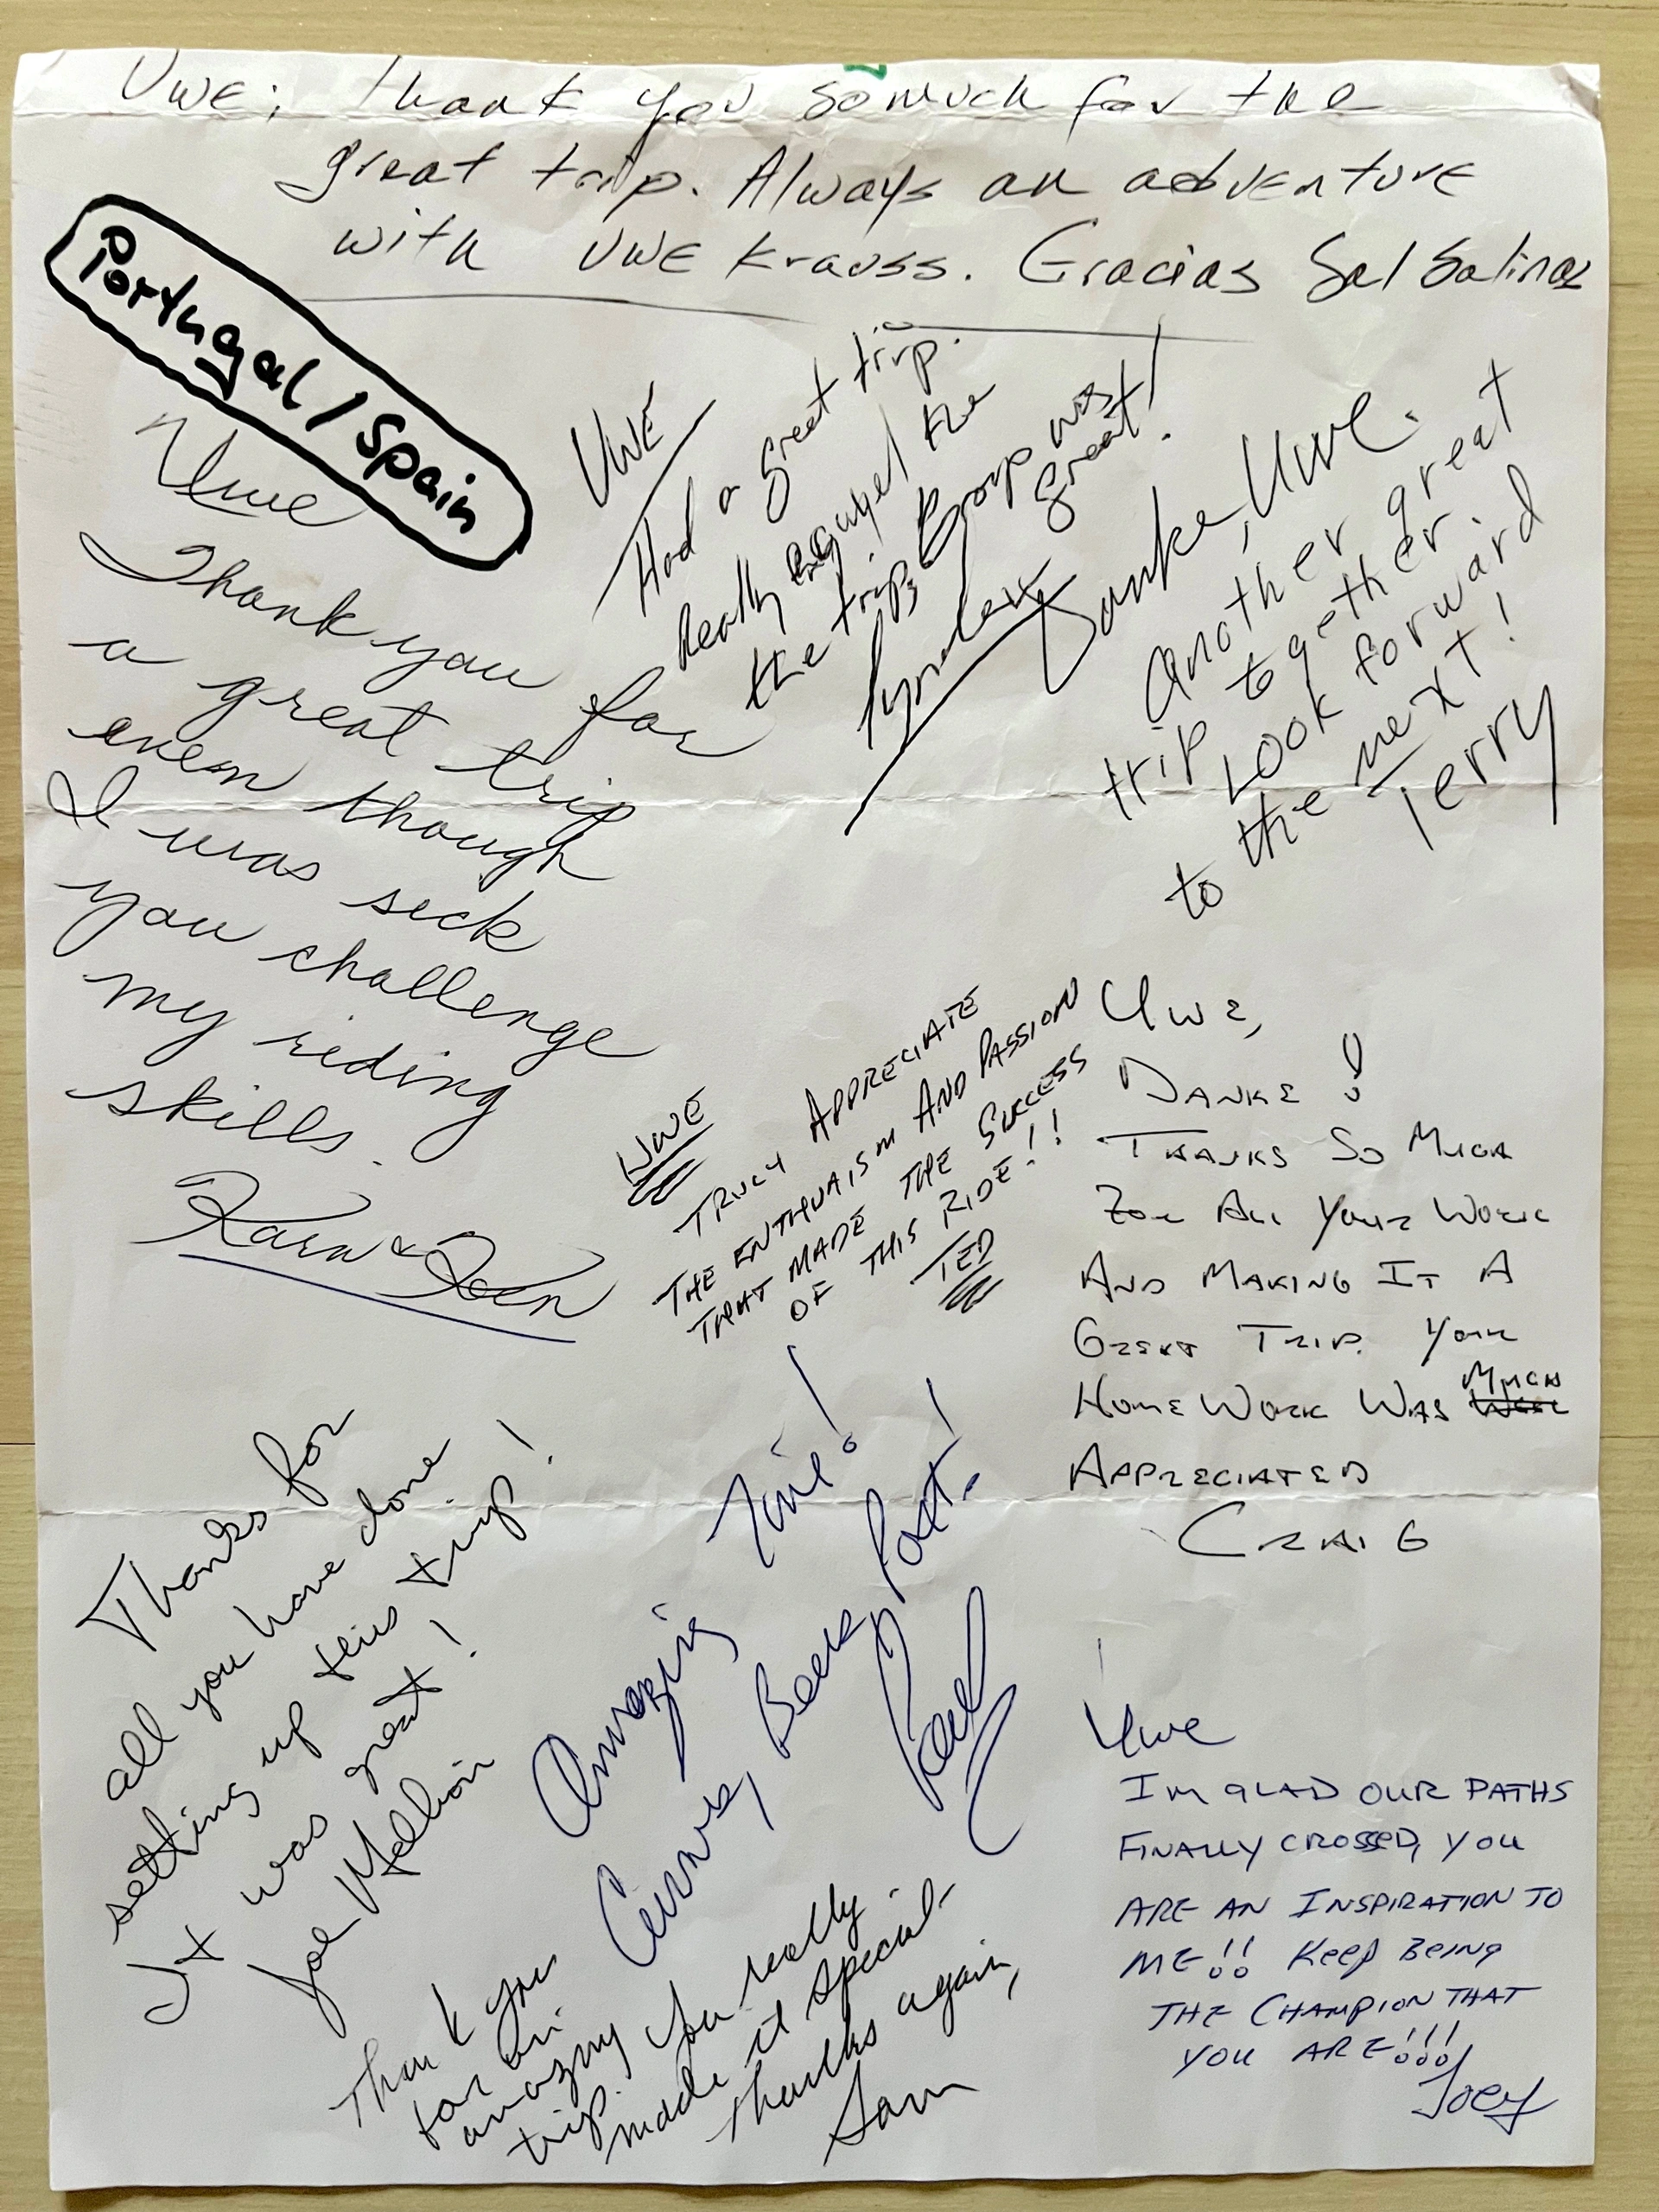 UWE; Thank you so much for the
great trip. Always an adventure
with UWE Krauss. Gracias Sal Salinas
Portugal/Spain
UWE
Had a great trip.
Really enjoyed the
the trip, Group was
great!
Danke, Uwe.
Another great
trip together
Look forward
to the next!
Terry
Uwe
Thank you for
a great trip
even though
I was sick
you challenge
my riding
skills.
Karn & Ken
UWE
TRULY APPRECIATE
THE ENTHUAISM AND PASSION
THAT MADE THE SUCCESS
OF THIS RIDE!!
TED
Uwe,
DANKE!
THANKS SO MUCH
FOR ALL YOUR WORK
AND MAKING IT A
GREAT TRIP. YOUR
HOMEWORK WAS MUCH
APPRECIATED
CRAIG
Thanks for
all you have done
setting up this trip!
It was great!
Joe Mellion
Amazing Time!
Curves, Beer, Port.
Paul
Thank you
for an
amazing
trip. You really
made it special.
Thanks again,
Sam
Uwe
I'M GLAD OUR PATHS
FINALLY CROSSED, YOU
ARE AN INSPIRATION TO
ME!! KEEP BEING
THE CHAMPION THAT
YOU ARE!!!
JOEY